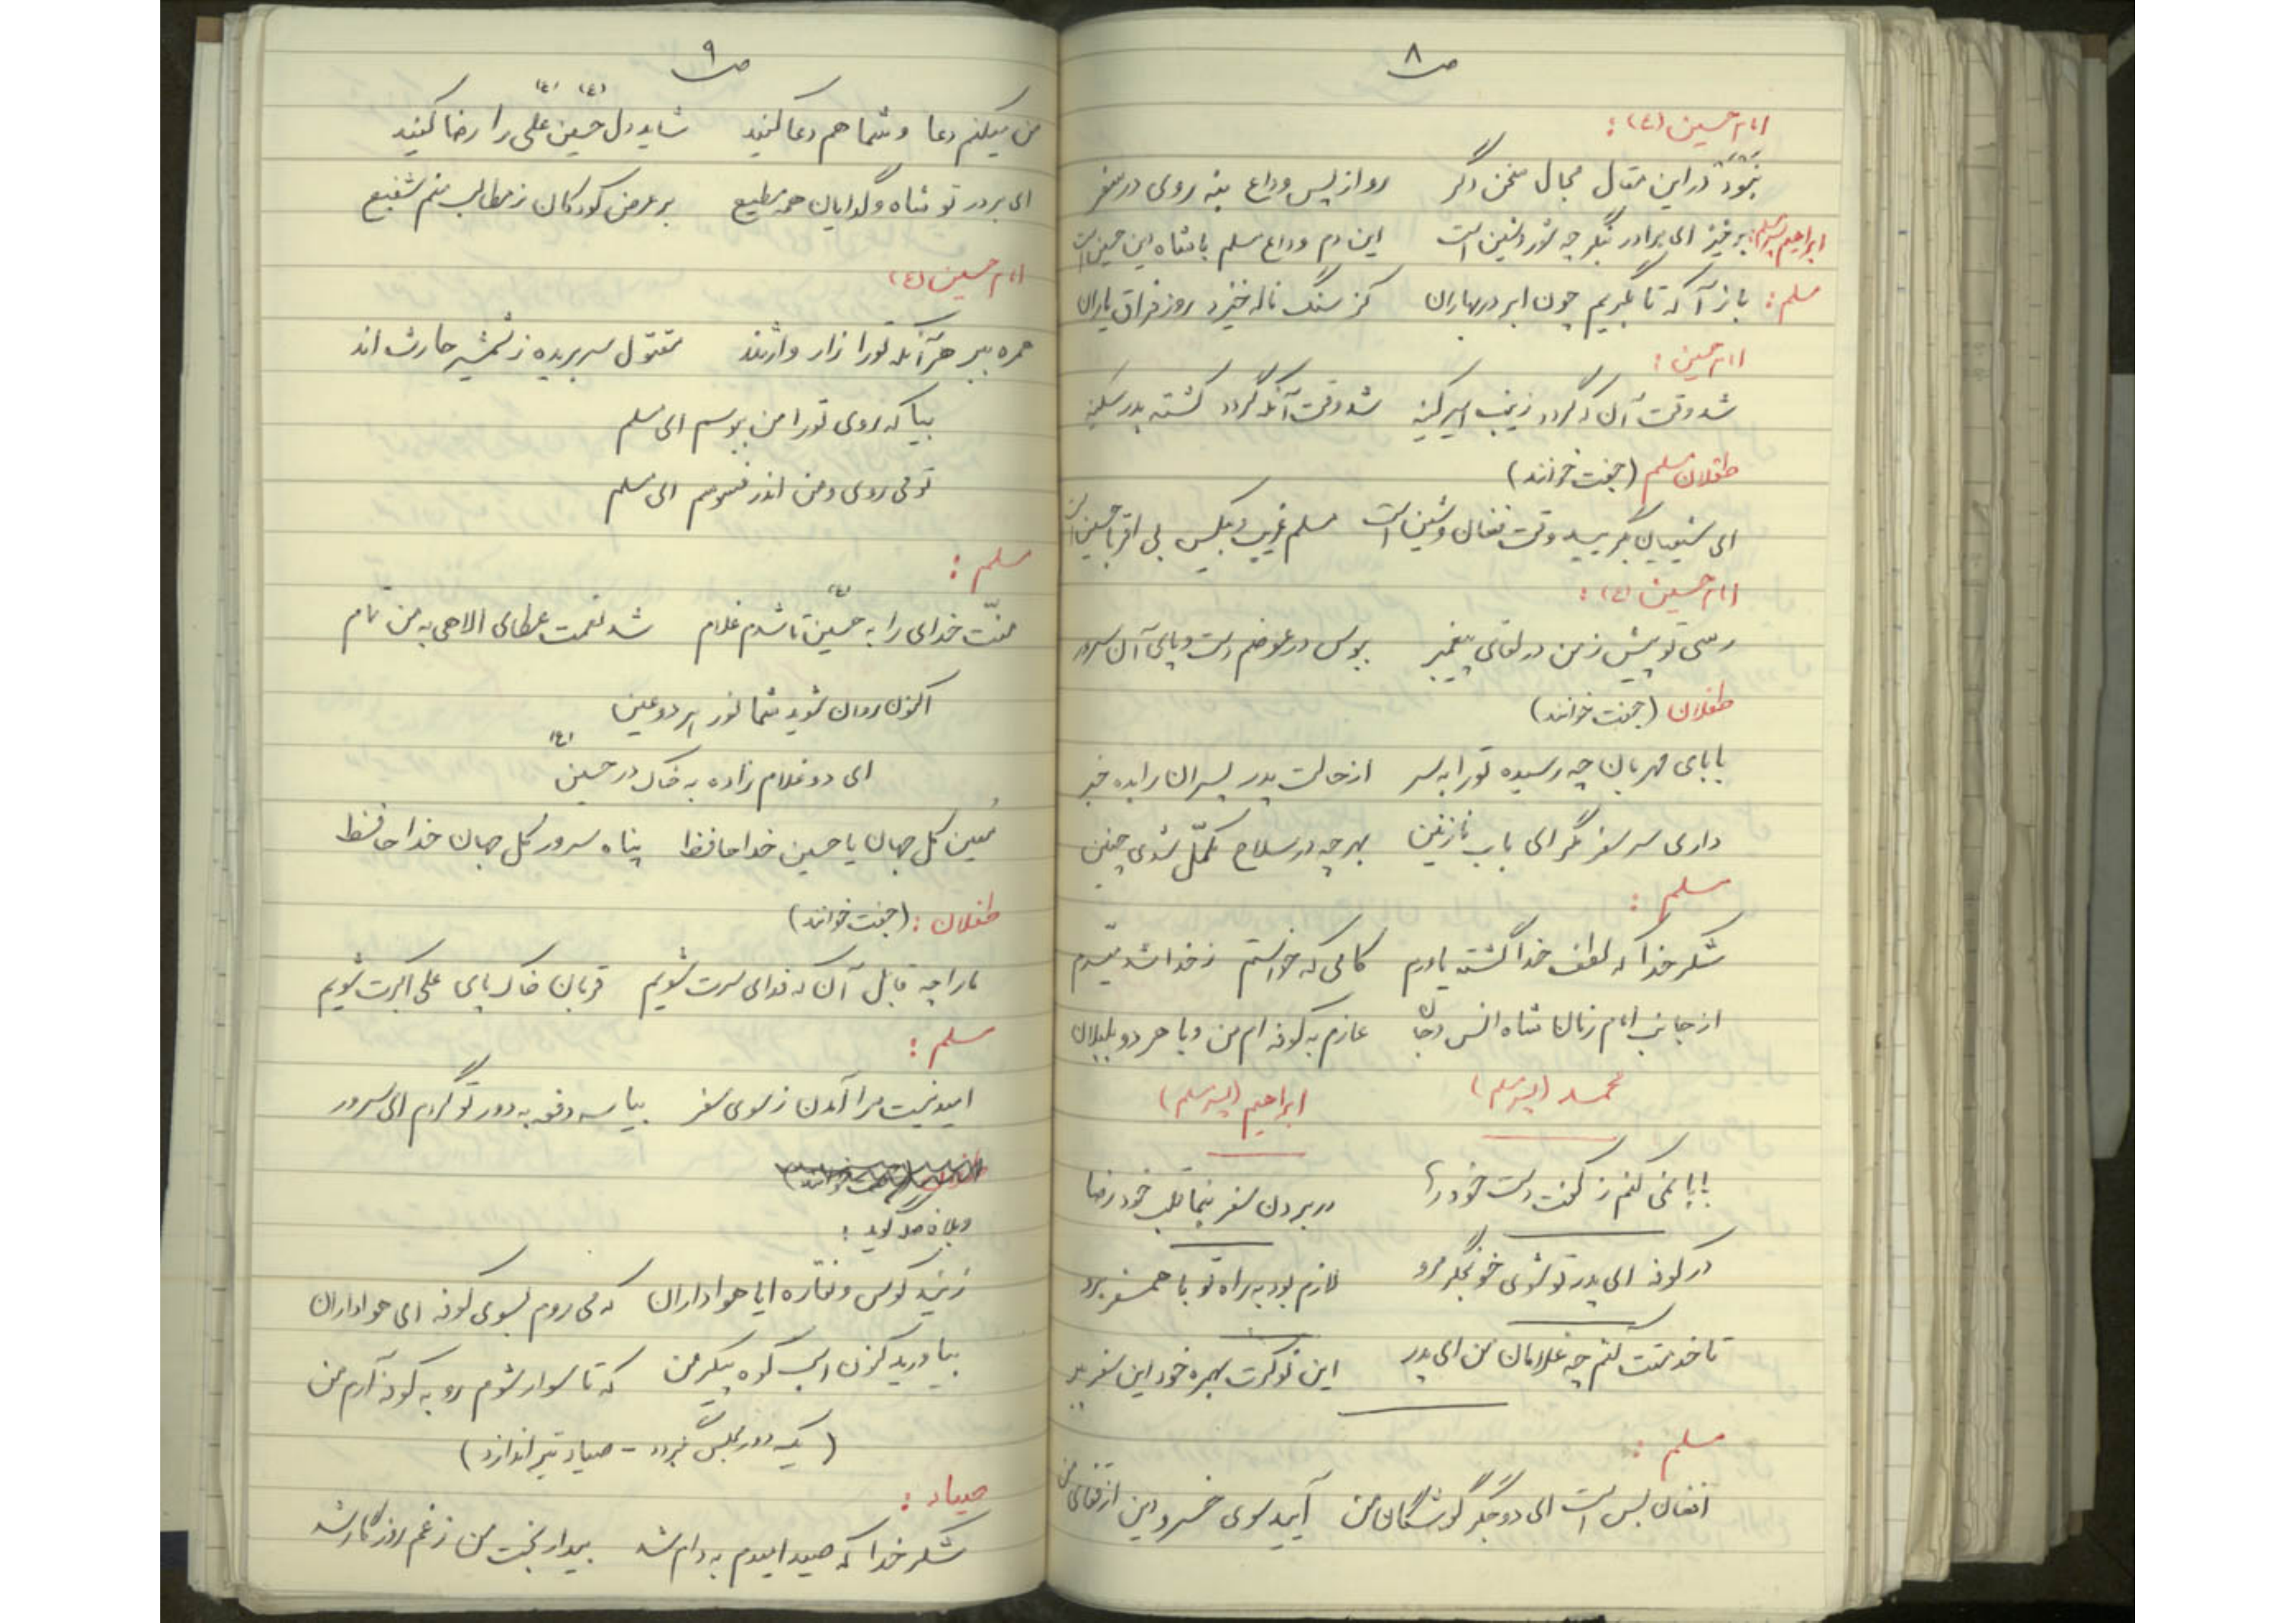 ص ۸
امام حسین (ع) :
نبود در این مقال مجال سخن دگر رو از پس وداع بنه روی در سفر
ابراهیم پسر مسلم: برخیز ای برادر بنگر چه شور و شین است این دم وداع مسلم با شاه دین حسین است
مسلم : باز آ که تا بگریم چون ابر در بهاران کز سنگ ناله خیزد روز فراق یاران
امام حسین :
شد وقت آن که گردد زینب اسیر کینه شد وقت آنکه گردد کشته پدر سکینه
طفلان مسلم (جفت خوانند)
ای شیعیان بگریید وقت فغان و شین است مسلم غریب و بیکس بی اقربا حسین است
امام حسین (ع) :
رسی تو پیش ز من در لقای پیغمبر ببوس در عوضم دست و پای آن سرور
طفلان (جفت خوانند)
بابای مهربان چه رسیده تو را به سر از حالت پدر پسران را بده خبر
داری سر سفر مگر ای باب نازنین بهر چه در سلاح مکمّل شدی چنین
مسلم :
شکر خدا که لطف خدا گشته یاورم کامی که خواستم ز خدا شد میّسرم
از جانب امام زمان شاه انس و جان عازم به کوفه ام من و با هر دو بلبلان
محمد (پسر مسلم) ابراهیم (پسر مسلم)
بابا نمی کنم ز کفت دست خود رها در بردن سفر بنما قلب خود رضا
در کوفه ای پدر تو شوی خونجگر مرو لازم بود به راه تو با همسفر برد
تا خدمتت کنم چه غلامان من ای پدر این نوکرت بهمره خود این سفر ببر
مسلم :
افغان بس است ای دو جگر گوشگان من آیید سوی خسرو دین از قفای من
ص ۹
من میکنم دعا و شما هم دعا کنید شاید دل حسین (ع) علی (ع) را رضا کنید
ای بر در تو شاه و گدایان همه مطیع بر عرض کودکان ز مطالب منم شفیع
امام حسین (ع)
همره ببر هر آنکه تو را زار وارثند مقتول سر بریده ز شمشیر حارث اند
بیا که روی تو را من ببوسم ای مسلم
تو می روی و من اندر فسوسم ای مسلم
مسلم :
منّت خدای را به حسین (ع) تا شدم غلام شد نعمت عطای الاهی به من تمام
اکنون روان شوید شما نور هر دو عین
ای دو غلام زاده به خاک در حسین (ع)
مُعین کل جهان یا حسین خدا حافظ پناه سرور کل جهان خدا حافظ
طفلان : (جفت خوانند)
ما را چه قابل آن که فدای سرت شویم قربان خاک پای علی اکبرت شویم
مسلم :
امید نیست مرا آمدن ز سوی سفر بیا سه دفعه به دور تو گردم ای سرور
گوید :
زنید کوس و نقاره ایا هواداران که می روم بسوی کوفه ای هواداران
بیاورید کنون اسب کوه پیکر من که تا سوار شوم رو به کوفه آرم من
(یک دور مجلس بگردد - صیاد تیر اندازد)
صیاد :
شکر خدا که صید امیدم به دام شد بیدار بخت من ز غم روزگار شد